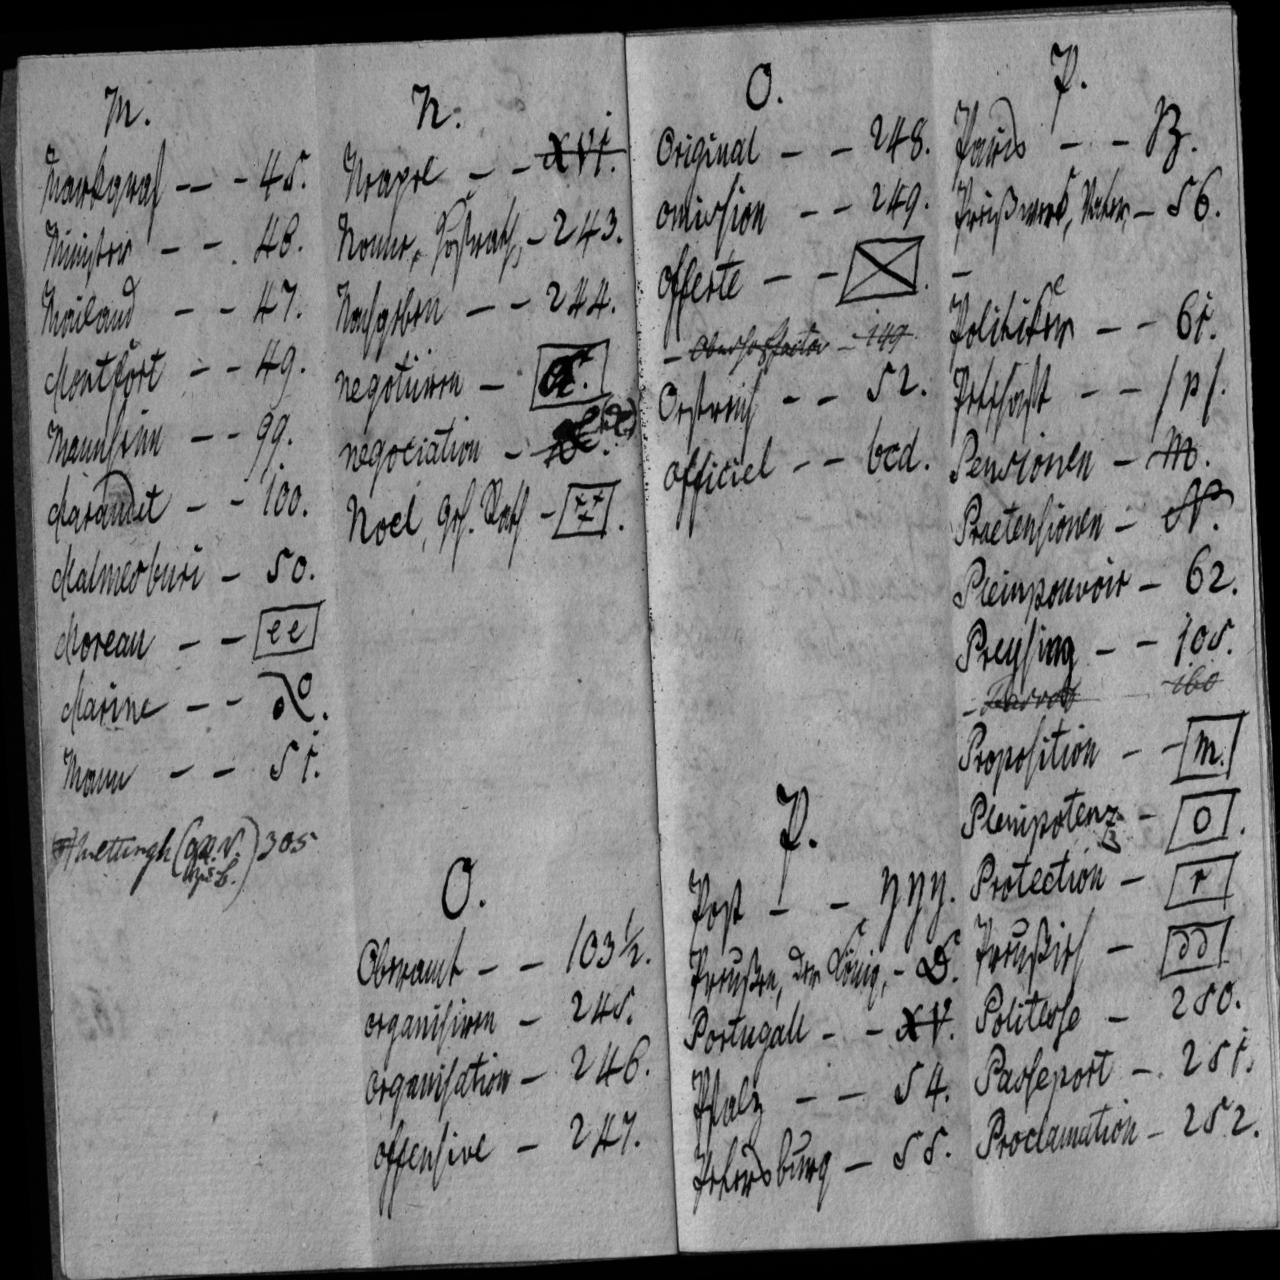 M.
Markgraf -- - 45.
Minister - - . 46.
Mailand - - 47.
Montfort - - 49.
Mannheim - - 99.
Marandet - - 100.
Malmesburi - 50.
Moreau - - ee
Marine - -
Mann - - 51.
305
N.
Neapel - - XVI.
243.
Nachgeben - - 244.
negotiiren -
negociation -
Noel, Geh. Rath -
O.
Oberamt - - 103½.
organisiren - 245.
organisation - 246.
offensive - 247.
O.
Original - - 248.
omission - - 249.
Offerte - -
- 149
Oestreich - - 52.
officiel - - bcd.
P.
Post - - yyy.
Preußen, der König, -
Portugall - - XV.
Pfalz - - 54.
Petersburg - 55.
P.
Paris - - B.
56.
-
Politiker - - 61.
Pettschaft - - /p/.
Pensionen - M.
Praetensionen - N.
Pleinpouvoir - 62.
Preysing - - 105.
- 160
Proposition - - m.
Plenipotenz - O.
Protection - r
Preußisch - dd
Politesse - 250.
Passeport - 251.
Proclamation - 252.